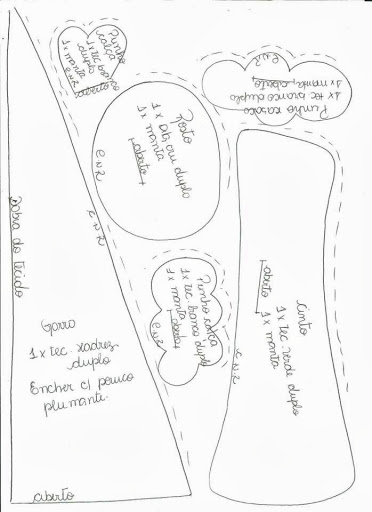 Punho
calça
1x tec. branco
duplo
1x manta
aberto
E N 2
Punho casaco
1x tec. branco duplo
1x manta, aberto
E N 2
Rosto
1x alg. cru duplo
1x manta
aberto
E N 2
E N 2
dobra do tecido
Punho calça
1x tec. branco duplo
1x manta
aberto
E N 2
Gorro
1x tec. xadrez
duplo
Encher c/ pouco
plumante.
aberto
cinto
1x tec. verde duplo
1x manta
aberto
E N 2